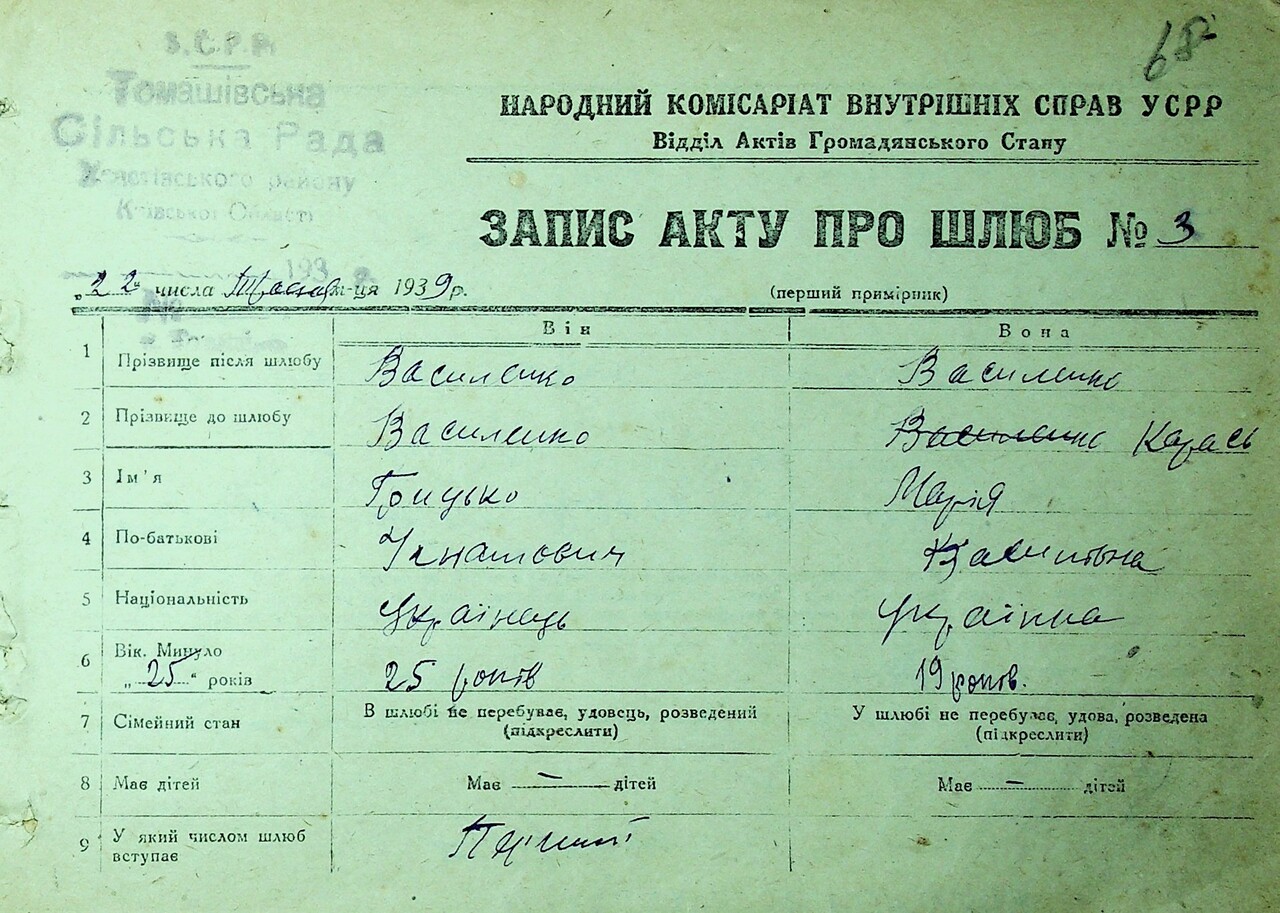 68
У.С.Р.Р.
Томашівська
Сільська Рада
району
Київської Області
193
№
НАРОДНИЙ КОМІСАРІАТ ВНУТРІШНІХ СПРАВ УСРР
Відділ Актів Громадянського Стану
ЗАПИС АКТУ ПРО ШЛЮБ № 3
„22" числа м-ця 1939 р.
(перший примірник)
Він Вона
1 Прізвище після шлюбу Василенко Василенко
2 Прізвище до шлюбу Василенко Василенко Карась
3 Ім'я Грицько Марія
4 По-батькові Ігнатович
5 Національність Українець Українка
6 Вік. Минуло
„25" років 25 років 19 років.
7 Сімейний стан В шлюбі не перебував, удовець, розведений У шлюбі не перебуває, удова, розведена
(підкреслити) (підкреслити)
8 Має дітей Має — дітей Має — дітей
9 У який числом шлюб
вступає Перший